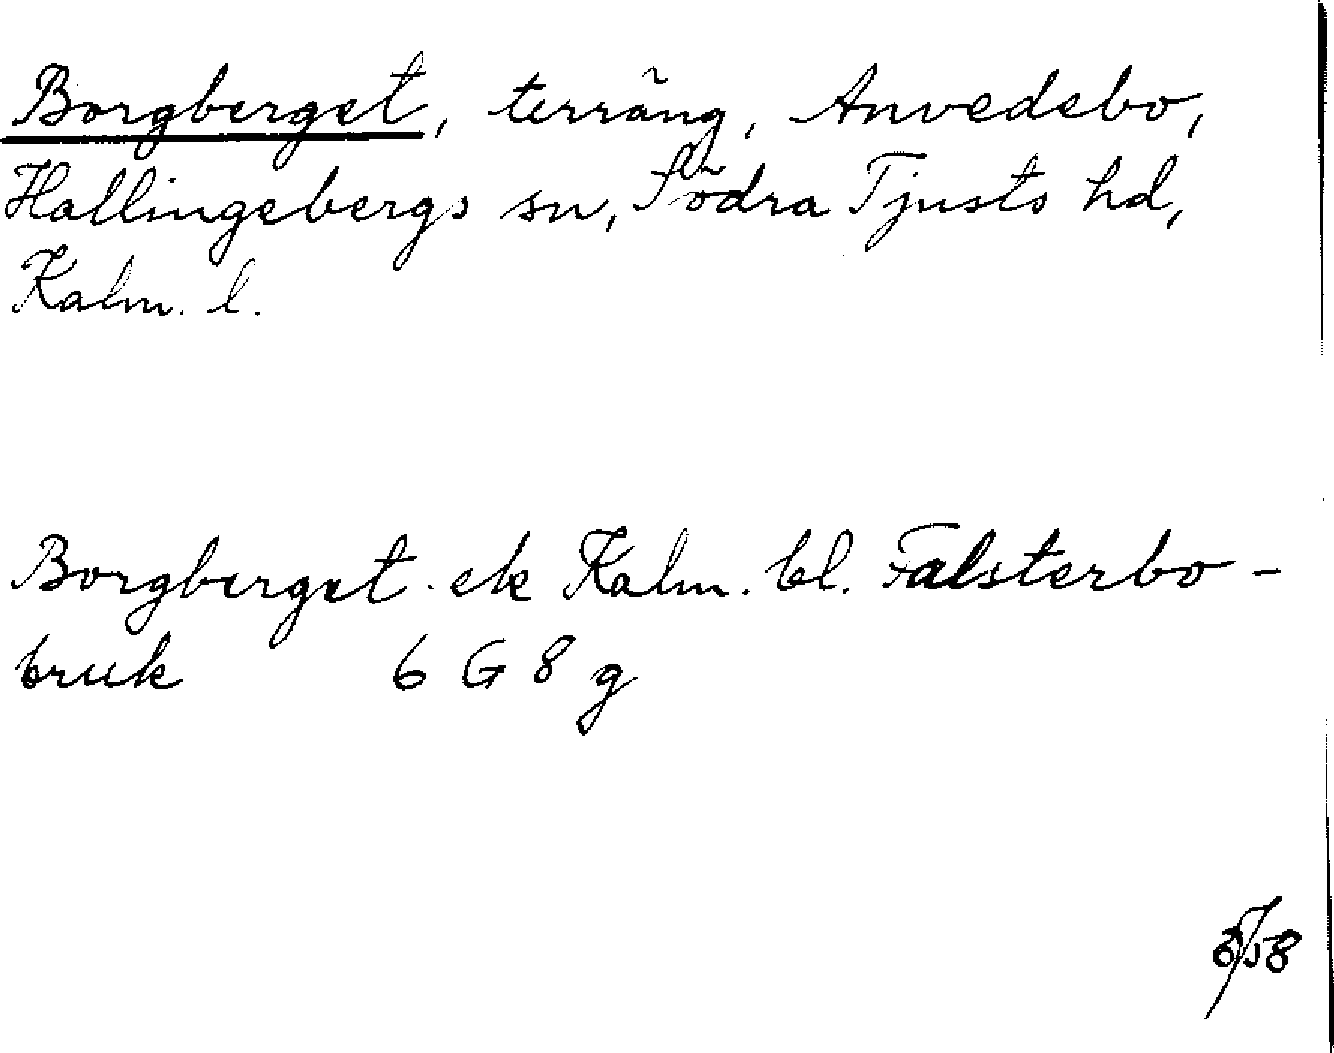 Borgberget, terräng, Anvedebo,
Hallingebergs sn, Södra Tjusts hd,
Kalm. l.
Borgberget ek Kalm. bl. Falsterbo-
bruk 6 G 8 g